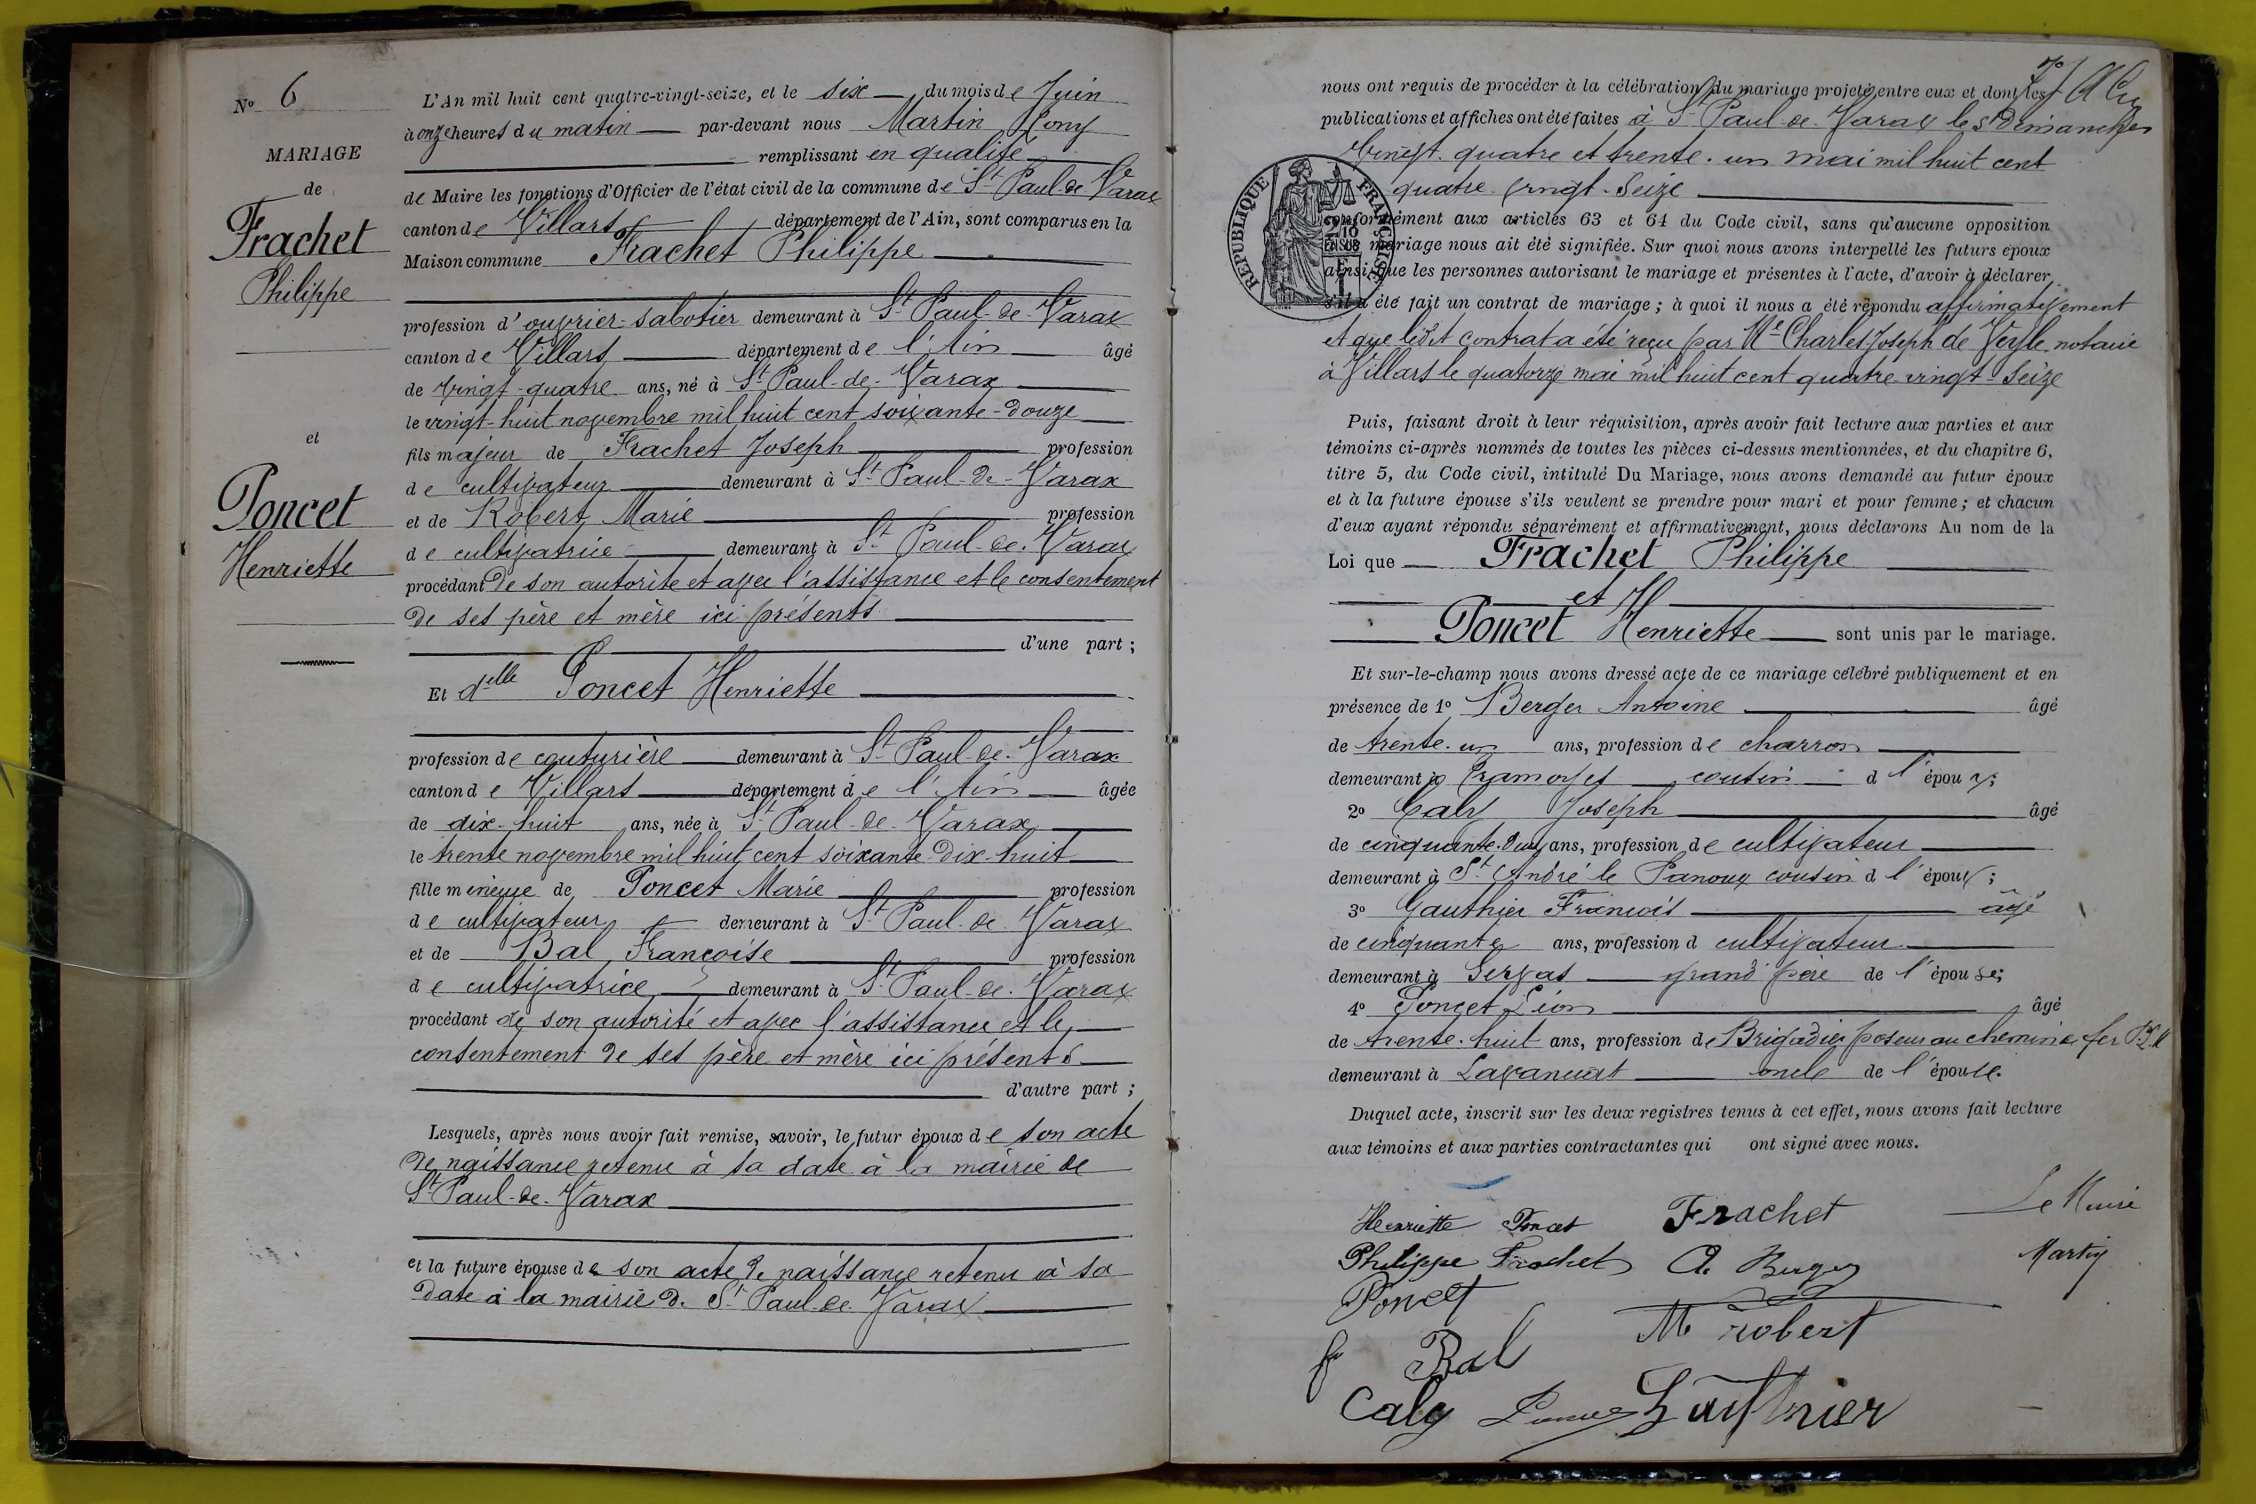 N° 6
MARIAGE
de
Frachet
Philippe
et
Poncet
Henriette
L'An mil huit cent quatre-vingt-seize, et le six du mois de Juin
à onze heures du matin par-devant nous Martin Rony
remplissant en qualité
de Maire les fonctions d'Officier de l'état civil de la commune de St Paul-de-Varax
canton de Villars département de l'Ain, sont comparus en la
Maison commune Frachet Philippe
profession d'ouvrier-sabotier demeurant à St Paul-de-Varax
canton de Villars département de l'Ain âgé
de vingt-quatre ans, né à St Paul-de-Varax
le vingt-huit novembre mil huit cent soixante-douze
fils majeur de Frachet Joseph profession
de cultivateur demeurant à St Paul-de-Varax
et de Robert Marie profession
de cultivatrice demeurant à St Paul-de-Varax
procédant de son autorité et avec l'assistance et le consentement
de ses père et mère ici présents
d'une part ;
Et delle Poncet Henriette
profession de couturière demeurant à St Paul-de-Varax
canton de Villars département de l'Ain âgée
de dix-huit ans, née à St Paul-de-Varax
le trente novembre mil huit cent soixante-dix-huit
fille mineure de Poncet Marie profession
de cultivateur demeurant à St Paul-de-Varax
et de Bal Françoise profession
de cultivatrice demeurant à St Paul-de-Varax
procédant de son autorité et avec l'assistance et le
consentement de ses père et mère ici présents
d'autre part ;
Lesquels, après nous avoir fait remise, savoir, le futur époux de son acte
de naissance retenu à sa date à la mairie de
St Paul-de-Varax
et la future épouse de son acte de naissance retenu à sa
date à la mairie de St Paul-de-Varax
nous ont requis de procéder à la célébration du mariage projeté entre eux et dont les
publications et affiches ont été faites à St Paul-de-Varax les Dimanches
vingt-quatre et trente-un mai mil huit cent
quatre-vingt-seize
RÉPUBLIQUE FRANÇAISE
conformément aux articles 63 et 64 du Code civil, sans qu'aucune opposition
au mariage nous ait été signifiée. Sur quoi nous avons interpellé les futurs époux
ainsi que les personnes autorisant le mariage et présentes à l'acte, d'avoir à déclarer
s'il a été fait un contrat de mariage ; à quoi il nous a été répondu affirmativement
et que ledit contrat a été reçu par Me Charles Joseph de Veyle notaire
à Villars le quatorze mai mil huit cent quatre-vingt-seize
Puis, faisant droit à leur réquisition, après avoir fait lecture aux parties et aux
témoins ci-après nommés de toutes les pièces ci-dessus mentionnées, et du chapitre 6,
titre 5, du Code civil, intitulé Du Mariage, nous avons demandé au futur époux
et à la future épouse s'ils veulent se prendre pour mari et pour femme ; et chacun
d'eux ayant répondu séparément et affirmativement, nous déclarons Au nom de la
Loi que Frachet Philippe
et
Poncet Henriette sont unis par le mariage.
Et sur-le-champ nous avons dressé acte de ce mariage célébré publiquement et en
présence de 1° Berger Antoine âgé
de trente-un ans, profession de charron
demeurant à Tramoyes cousin d l'époux;
2° Caly Joseph âgé
de cinquante-deux ans, profession de cultivateur
demeurant à St André le Panoux cousin d l'époux;
3° Gauthier François âgé
de cinquante ans, profession d cultivateur
demeurant à Servas grand père de l'épouse;
4° Poncet Léon âgé
de trente-huit ans, profession de Brigadier poseur au chemin de fer
demeurant à oncle de l'épouse.
Duquel acte, inscrit sur les deux registres tenus à cet effet, nous avons fait lecture
aux témoins et aux parties contractantes qui ont signé avec nous.
Henriette Poncet Frachet Le Maire
Philippe Frachet A. Berger Martin
Poncet
M robert
fr Bal
Caly Poncet Gauthier